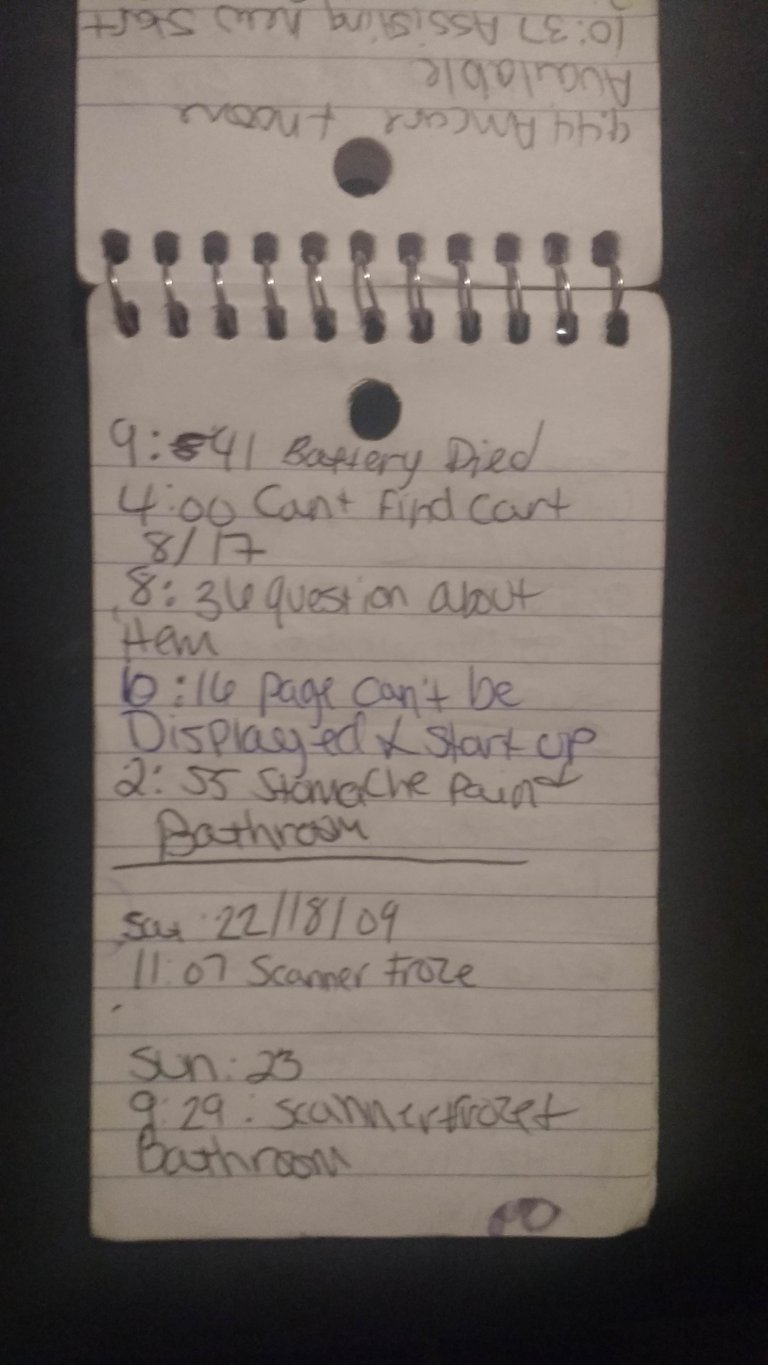 10:37 Assisting new start
Available
9:44 Am cart + noone
9:41 Battery Died
4:00 Can't Find Cart
8/17
8:36 question about
Item
10:16 page can't be
Displayed & Start up
2:55 Stomache Pain +
Bathroom
Sat 22/18/09
11:07 Scanner Froze
Sun: 23
9:29: Scanner froze +
Bathroom